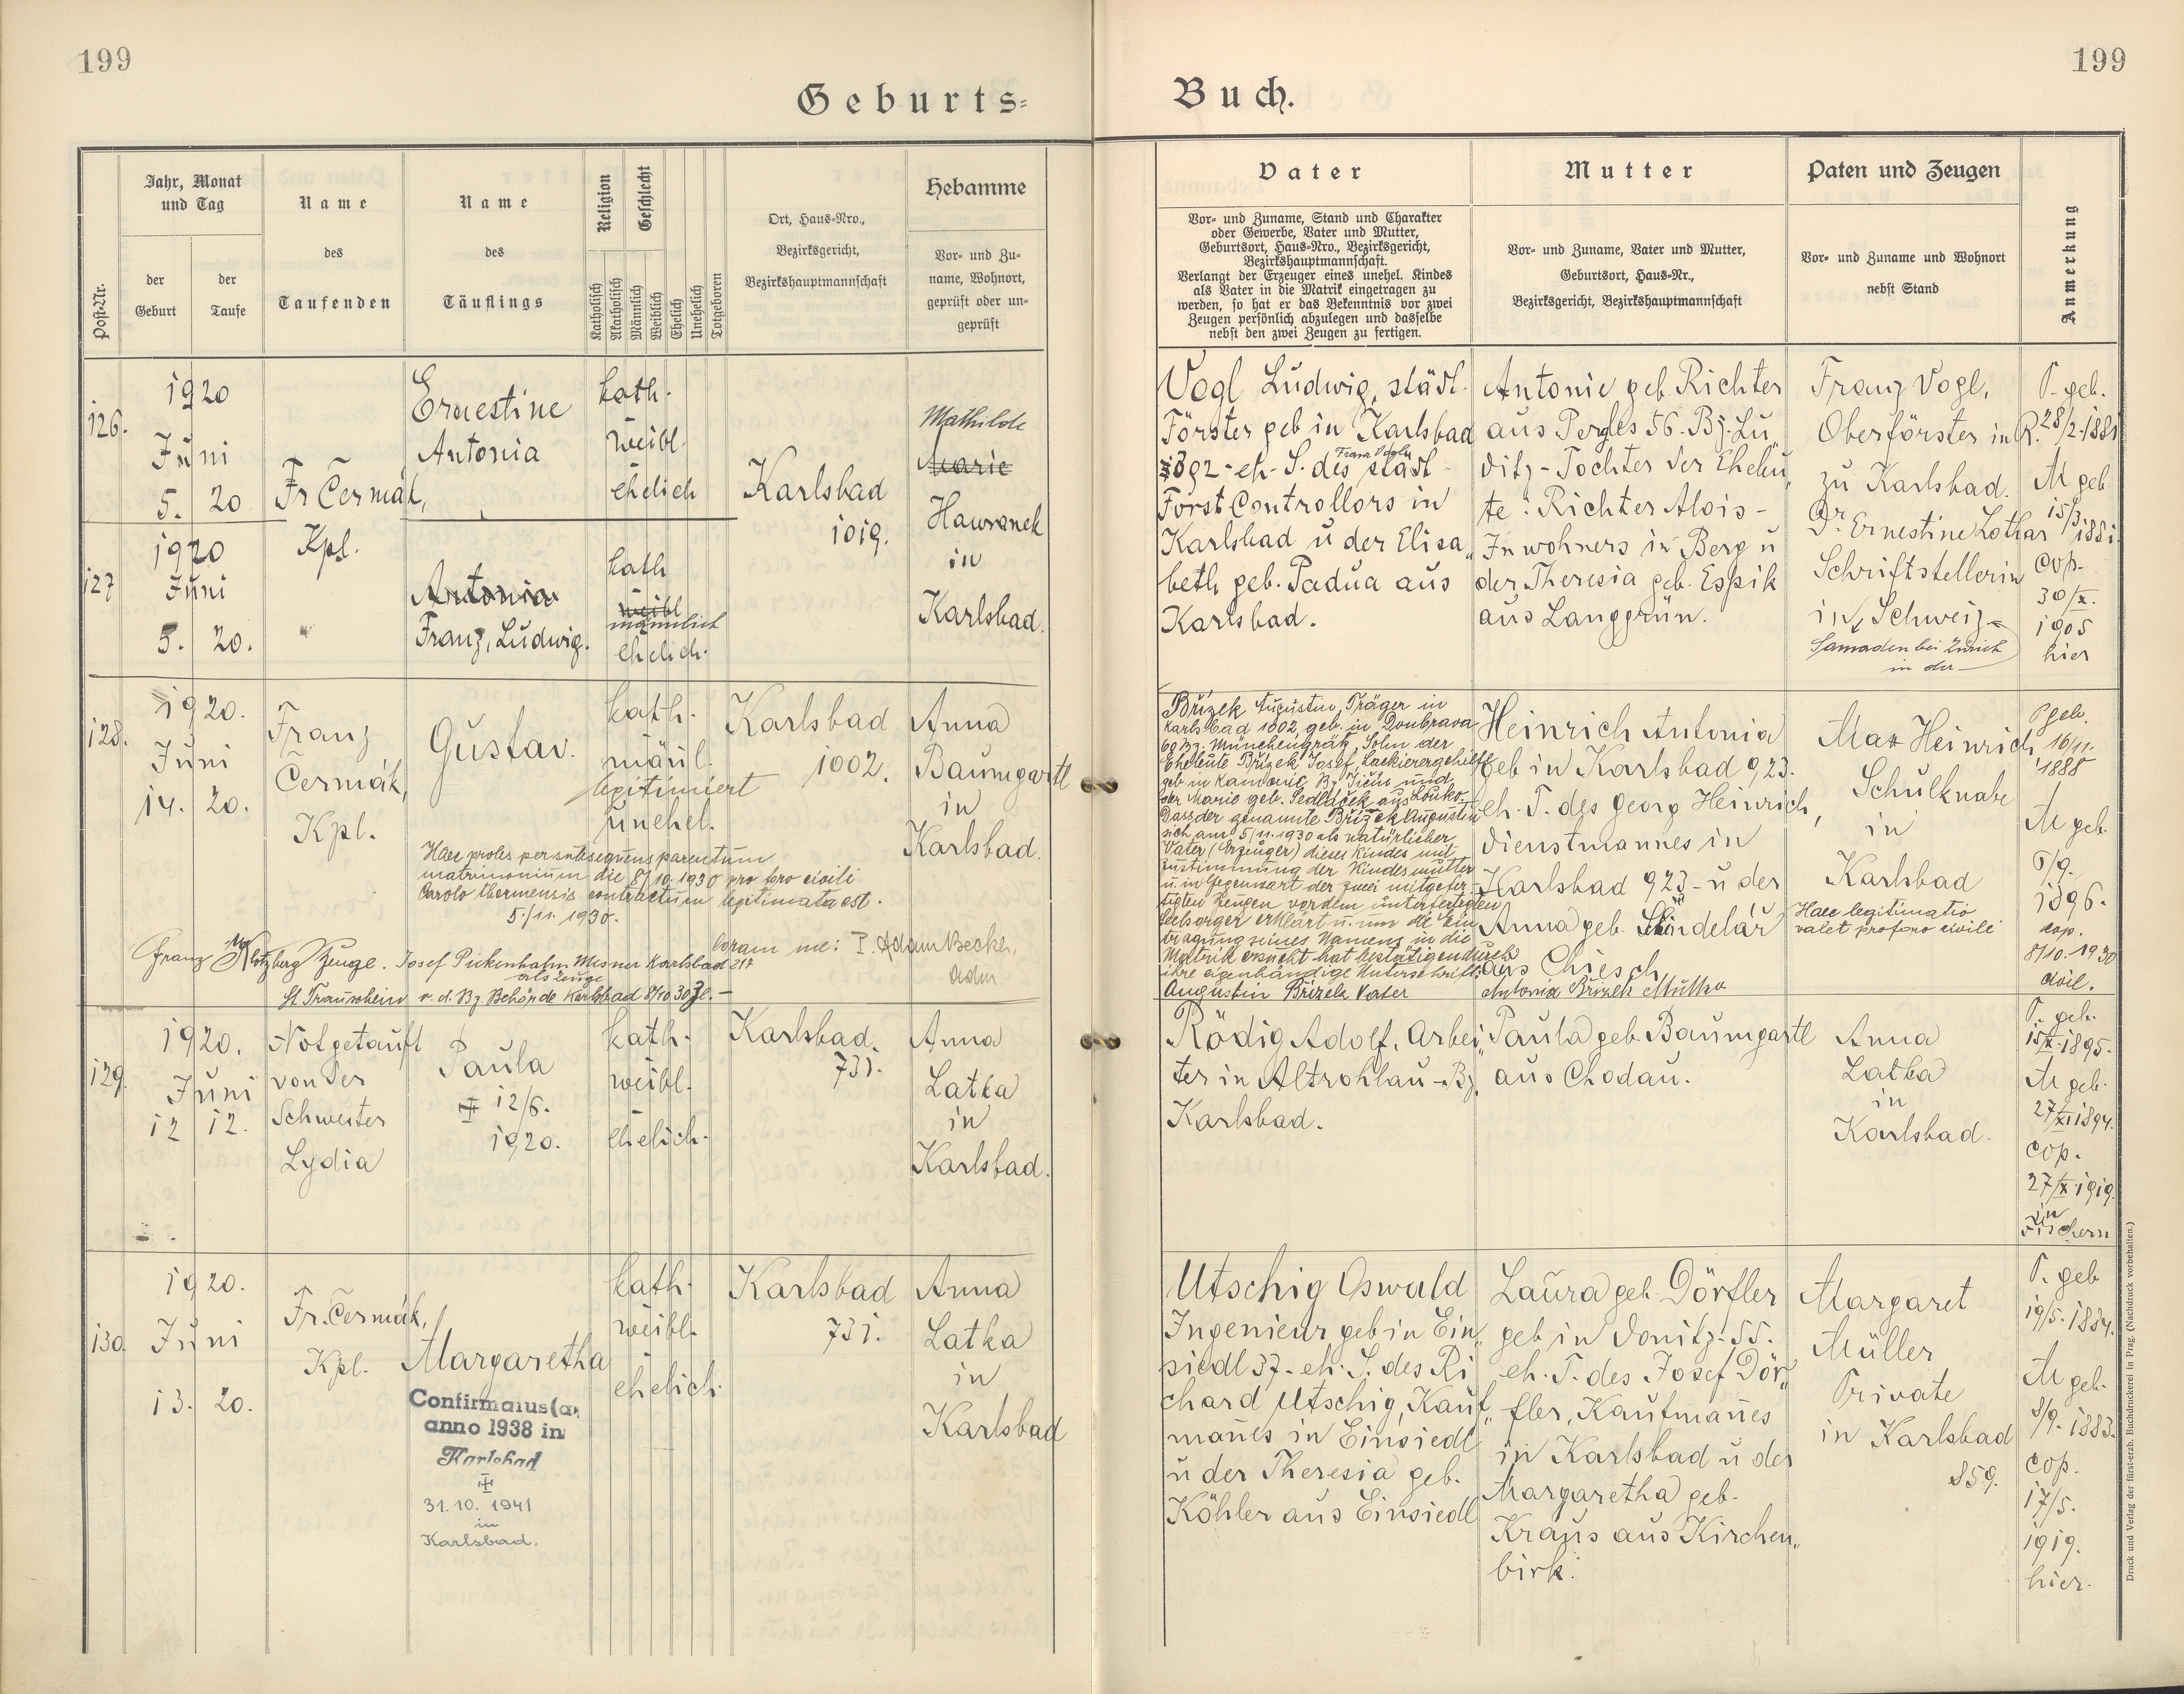 199
199
Geburts=
Buch.
Post-Nr.
Jahr, Monat
und Tag
der
Geburt
der
Taufe
Name
des
Taufenden
Name
des
Täuflings
Religion
Geschlecht
Katholisch
Akatholisch
Männlich
Weiblich
Ehelich
Unehelich
Totgeboren
Ort, Haus-Nro.,
Bezirksgericht,
Bezirkshauptmannschaft
Hebamme
Vor- und Zu-
name, Wohnort,
geprüft oder un-
geprüft
Vater
Vor- und Zuname, Stand und Charakter
oder Gewerbe, Vater und Mutter,
Geburtsort, Haus-Nro., Bezirksgericht,
Bezirkshauptmannschaft.
Verlangt der Erzeuger eines unehel. Kindes
als Vater in die Matrik eingetragen zu
werden, so hat er das Bekenntnis vor zwei
Zeugen persönlich abzulegen und dasselbe
nebst den zwei Zeugen zu fertigen.
Mutter
Vor- und Zuname, Vater und Mutter,
Geburtsort, Haus-Nr.,
Bezirksgericht, Bezirkshauptmannschaft
Paten und Zeugen
Vor- und Zuname und Wohnort
nebst Stand
Anmerkung
126.
1920
Juni
5. 20
Fr Čermák,
Kpl.
Ernestine
Antonia
kath.
weibl.
ehelich
Karlsbad
1019.
Mathilde
Marie
Hawranek
in
Karlsbad.
Vogl Ludwig, städt.
Förster geb in Karlsbad
Franz Vogls
892 - eh. S. des städt -
Forst Controllors in
Karlsbad u der Elisa„
beth geb. Padua aus
Karlsbad.
Antonie geb. Richter
aus Pergles 56. Bz. Lu„
ditz - Tochter der Eheleu„
te: Richter Alois -
Inwohners in Berg u
der Theresia geb. Espik
aus Langgrün.
Franz Vogl,
Oberförster in R.
zu Karlsbad.
Dr. Ernestine Lothar
Schriftstellerin
in Schweiz
Samaden bei Zürich
in der
P. geb.
28/2. 1881
M geb.
15/3. 1881.
cop.
30/X.
1905
hier
127
1920
Juni
5. 20.
Antonia
Franz, Ludwig.
kath
weibl
männlich
ehelich.
128.
1920.
Juni
14. 20.
Franz
Čermák,
Kpl.
Gustav.
kath.
mäñl.
legitimiert
unehel.
Karlsbad
1002.
Anna
Baumgartl
in
Karlsbad.
Haec proles per subsequens parentum
matrimonium die 8/10. 1930 pro foro civili
Carolo thermensis contractum legitimata est.
5./11. 1930.
Coram me: P. Adam Becker,
Franz Klotzberg Zeuge. Josef Pickenhahn Mesner Karlsbad 217
als Zeuge
lt Trauschein v. d. Bz Behörde Karlsbad 8/10 30
Břízek Augustin, Träger in
Karlsbad 1002, geb. in Doubrava
60 Bz. Münchengrätz, Sohn der
Eheleute Břízek Josef, Lackierergehilfe
geb in Kamenic, Bz Jičin und
der Marie geb. Sedláček aus Louko.
Dass der genannte Břízek Augustin
sich am 5/11. 1930 als natürlicher
Vater (Erzeuger) dieses Kindes mit
Zustimmung der Kindesmutter
u. in Gegenwart der zwei mitgefer-
tigten Zeugen vor dem unterfertigten
Seelsorger erklärt u. um die Ein-
tragung seines Namens in die
Matrik ersucht hat bestätigen durch
ihre eigenhändige Unterschrift:
Augustin Břízek Vater
Heinrich Antonia
geb in Karlsbad 923.
eh. T. des Georg Heinrich,
Dienstmannes in
Karlsbad 923 - u der
Anna geb. Schindelář
aus Chiesch
Antonia Břízek Mutter
Max Heinrich
Schulknabe
in
Karlsbad
Haec legitimatio
valet pro foro civili
P geb.
16/11.
1888
M geb.
6/9.
1896.
cop.
8/10. 1930
civil.
129.
1920.
Juni
12 12.
Notgetauft
von der
Schwester
Lydia
Paula
12/6.
1920.
kath.
weibl.
ehelich.
Karlsbad.
731.
Anna
Latka
in
Karlsbad.
Rödig Adolf, Arbei„
ter in Altrohlau - Bz.
Karlsbad.
Paula geb. Baumgartl
aus Chodau.
Anna
Latka
in
Karlsbad.
P. geb.
15/X. 1895.
M geb.
27/XI 1894.
cop.
27/X. 1919.
in
Fischern
130
1920.
Juni
13. 20.
Fr. Čermák,
Kpl.
Margaretha
Confirmatus (a)
anno 1938 in
Karlsbad
31. 10. 1941
in
Karlsbad.
kath.
weibl.
ehelich.
Karlsbad
731.
Anna
Latka
in
Karlsbad
Utschig Oswald
Ingenieur geb in Ein„
siedl 37 - eh. S. des Ri
chard Utschig, Kauf„
mañes in Einsiedl
u der Theresia geb.
Köhler aus Einsiedl
Laura geb. Dörfler
geb in Donitz - 55.
eh. T. des Josef Dör„
fler, Kaufmañes
in Karlsbad u der
Margaretha geb.
Kraus aus Kirchen„
birk.
Margaret
Müller
Private
in Karlsbad
859.
P. geb
19/5. 1884.
M geb.
8/9. 1883.
cop.
17/5.
1919.
hier.
Druck und Verlag der fürst-erzb. Buchdruckerei in Prag. (Nachdruck vorbehalten.)